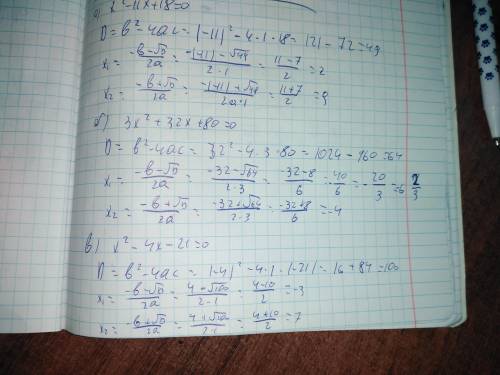 а) x² - 11x + 18 = 0
D = в² - 4ac = (-11)² - 4 · 1 · 18 = 121 - 72 = 49
x₁ = (-в - √D)/2a = (-(-11) - √49)/(2 · 1) = (11 - 7)/2 = 2
x₂ = (-в + √D)/2a = (-(-11) + √49)/(2a · 1) = (11 + 7)/2 = 9
б) 3x² + 32x + 80 = 0
D = в² - 4ac = 32² - 4 · 3 · 80 = 1024 - 960 = 64
x₁ = (-в - √D)/2a = (-32 - √64)/(2 · 3) = (-32 - 8)/6 = -40/6 = -20/3 = -6 2/3
x₂ = (-в + √D)/2a = (-32 + √64)/(2 · 3) = (-32 + 8)/6 = -4
в) x² - 4x - 21 = 0
D = в² - 4ac = (-4)² - 4 · 1 · (-21) = 16 + 84 = 100
x₁ = (-в - √D)/2a = (4 - √100)/(2 · 1) = (4 - 10)/2 = -3
x₂ = (-в + √D)/2a = (4 + √100)/(2 · 1) = (4 + 10)/2 = 7